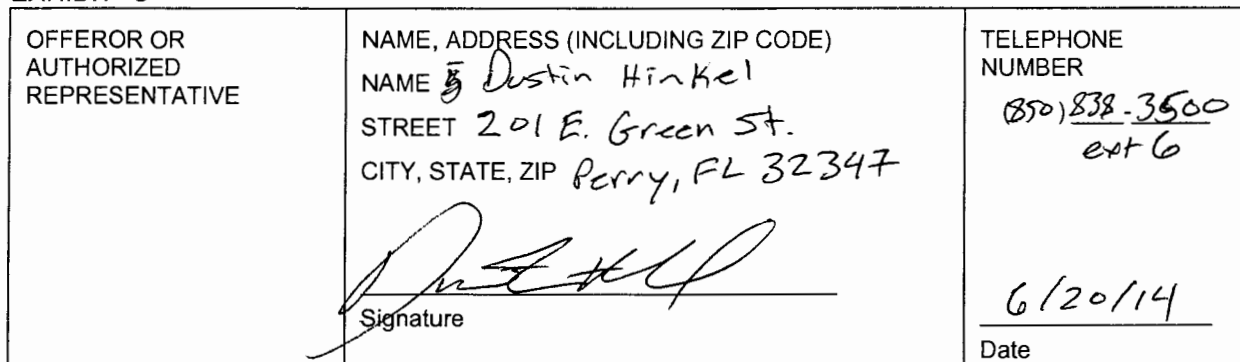 OFFEROR OR
AUTHORIZED
REPRESENTATIVE
NAME, ADDRESS (INCLUDING ZIP CODE)
NAME Dustin Hinkel
STREET 201 E. Green St.
CITY, STATE, ZIP Perry, FL 32347
Signature
TELEPHONE
NUMBER
(850) 838-3500
ext 6
6/20/14
Date